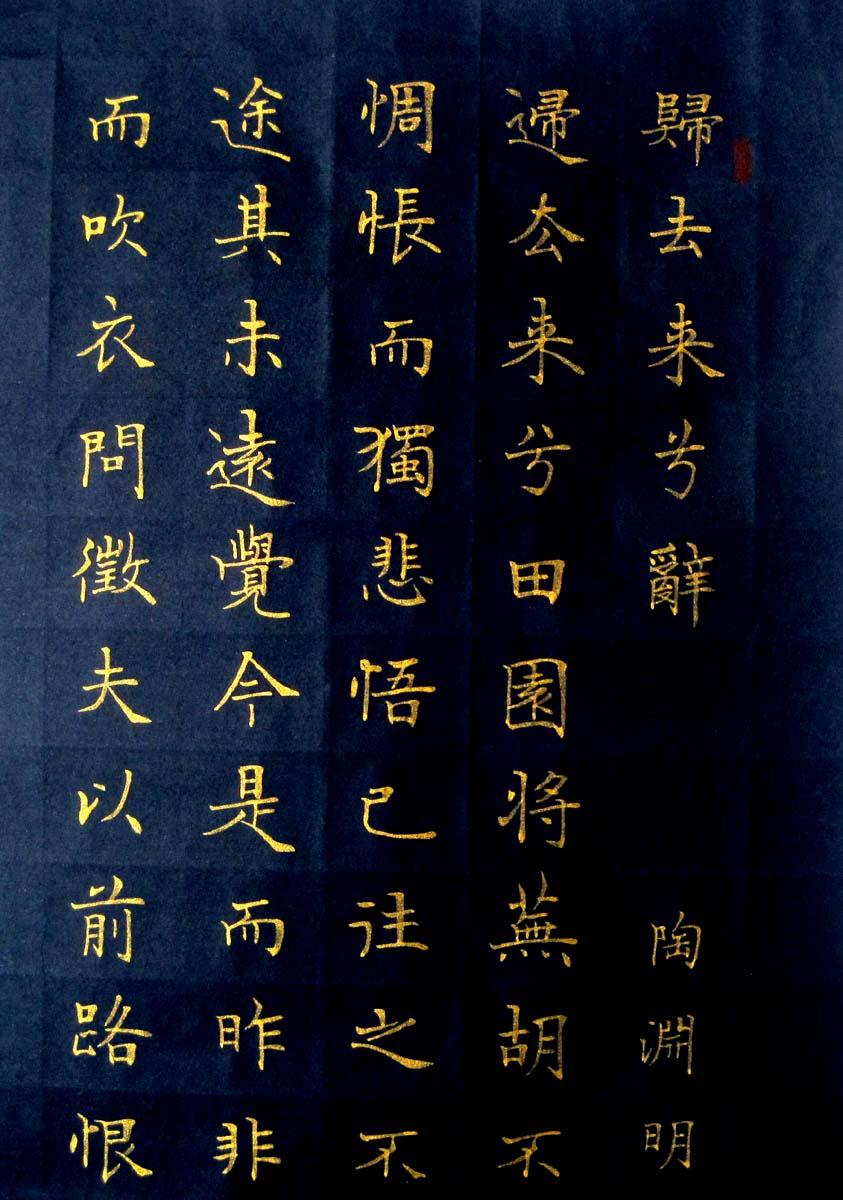 歸去来兮辭 陶淵明
歸去来兮田園将蕪胡不
惆悵而獨悲悟已往之不
途其未遠覺今是而昨非
而吹衣問徵夫以前路恨